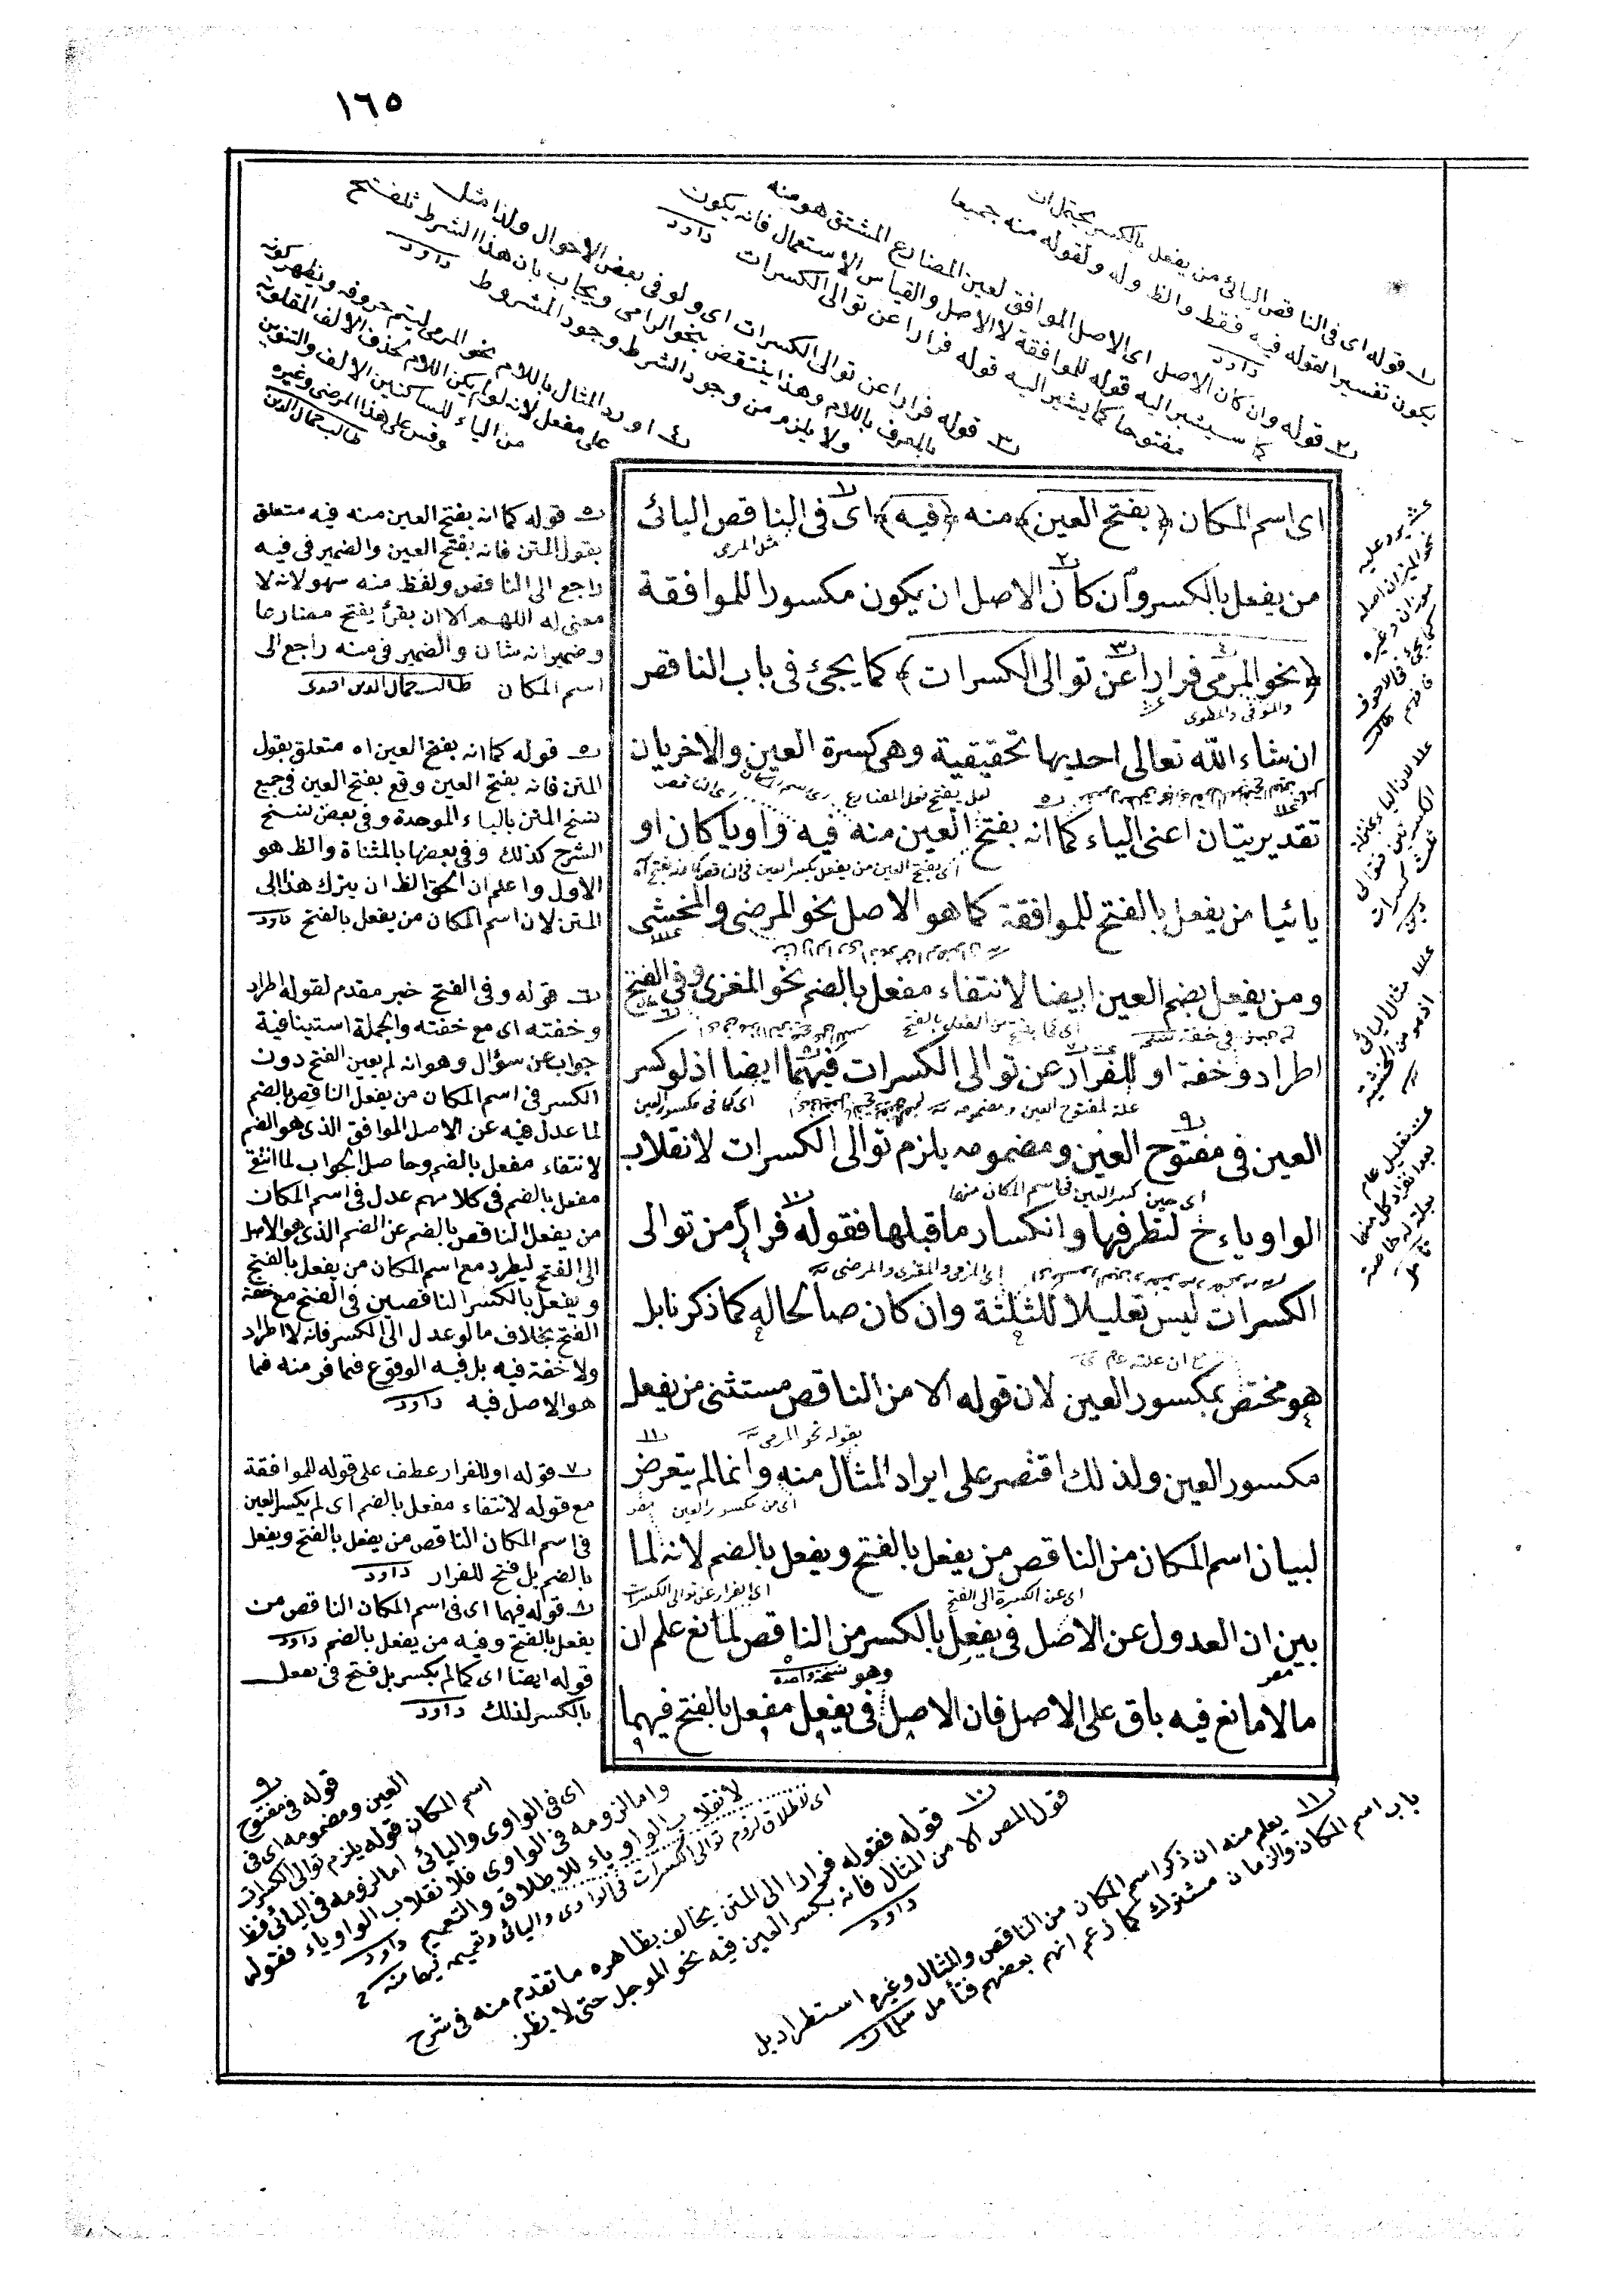 ١٦٥
١ قوله اى فى الناقص اليائى من يفعل بالكسر يحتمل ان
يكون تفسيرا لقوله فيه فقط والظ وله ولقوله منه جميعا
داود
٢ قوله وان كان الاصل اى الاصل الموافق لعين المضارع المشتق هو منه
كما سيشير اليه قوله للموافقة لا الاصل والقياس الاستعمال فانه يكون
مفتوحا كما يشير اليه قوله فرارا عن توالى الكسرات داود
٣ قوله فرارا عن توالى الكسرات اى ولو فى بعض الاحوال ولذا مثل
بالمعرف باللام وهذا ينتقض بنحو الرامى ويجاب بان هذا الشرط للفتح
ولا يلزم من وجود الشرط وجود المشروط داود
٤ اورد المثال باللام نحو المرمى ليتم حروفه ويظهر كونه
على مفعل لانه لو لم يكن اللام لحذف الالف المقلوبة
من الياء للساكنين الالف والتنوين
وقس على هذا المرضى وغيره
طالب جمال الدين
اى اسم المكان ﴿بفتح العين﴾ منه ﴿فيه﴾ اى فى الناقص اليائى
مثل المرمى
من يفعل بالكسر وان كان الاصل ان يكون مكسورا للموافقة
﴿نحو المرمى فرارا عن توالى الكسرات﴾ كما يجئ فى باب الناقص
والموقى والمطوى
ان شاء الله تعالى احديها تحقيقية وهى كسرة العين والاخريان
تقديريتان اعنى الياء كما انه بفتح العين منه فيه واويا كان او
اى بفتح العين من يفعل بكسر العين فى الناقص كما انه بفتح اه
يائيا من يفعل بالفتح للموافقة كما هو الاصل نحو المرضى والمخشى
ومن يفعل بضم العين ايضا لانتفاء مفعل بالضم نحو المغزى وفى الفتح
اطراد وخفة او للفرار عن توالى الكسرات فيهما ايضا اذ لو كسر
علة لمفتوح العين ومضمومه
اى كما فى مكسور العين
العين فى مفتوح العين ومضمومه يلزم توالى الكسرات لانقلاب
اى حين كسر العين فى اسم المكان منهما
الواو ياء خ لتطرفها وانكسار ماقبلها فقوله فرارا من توالى
الكسرات ليس تعليلا للثلثة وان كان صالحاله كما ذكرنا بل
هو مختص بمكسور العين لان قوله الا من الناقص مستثنى من يفعل
بقوله نحو المرمى
مكسور العين ولذلك اقتصر على ايراد المثال منه وانما لم يتعرض
اى من مكسور العين
لبيان اسم المكان من الناقص من يفعل بالفتح ويفعل بالضم لانه لما
اى عن الكسرة الى الفتح
اى الفرار عن توالى الكسرات
بين ان العدول عن الاصل فى يفعل بالكسر من الناقص لمانع علم ان
وهو نسخة واحدة
مالا مانع فيه باق على الاصل فان الاصل فى يفعل مفعل بالفتح فيهما
٥ قوله كما انه بفتح العين منه فيه متعلق
بقول المتن فانه بفتح العين والضمير فى فيه
راجع الى الناقص ولفظ منه سهو لانه لا
معنى له اللهم الا ان يقرأ يفتح مضارعا
وضمير انه شان والضمير فى منه راجع الى
اسم المكان طالب جمال الدين افندى
٥ قوله كما انه بفتح العين اه متعلق بقول
المتن فانه بفتح العين وقع بفتح العين فى جميع
نسخ المتن بالباء الموحدة وفى بعض نسخ
الشرح كذلك وفى بعضها بالمثناة والظ هو
الاول واعلم ان الحق الظ ان يترك هذا الى
المتن لان اسم المكان من يفعل بالفتح داود
٦ قوله وفى الفتح خبر مقدم لقوله اطراد
وخفته اى مع خفته والجملة استينافية
جواب عن سؤال وهو انه لم يعين الفتح دون
الكسر فى اسم المكان من يفعل الناقص بالضم
لما عدل فيه عن الاصل الموافق الذى هو الضم
لانتفاء مفعل بالضم وحاصل الجواب لما انتفى
مفعل بالضم فى كلامهم عدل فى اسم المكان
من يفعل الناقص بالضم عن الضم الذى هو الاصل
الى الفتح ليطرد مع اسم المكان من يفعل بالفتح
ويفعل بالكسر الناقصين فى الفتح مع خفة
الفتح بخلاف ما لو عدل الى الكسر فانه لا اطراد
ولا خفة فيه بل فيه الوقوع فيما فر منه فيما
هو الاصل فيه داود
٧ قوله او للفرار عطف على قوله للموافقة
مع قوله لانتفاء مفعل بالضم اى لم يكسر العين
فى اسم المكان الناقص من يفعل بالفتح ويفعل
بالضم بل فتح للفرار داود
٨ قوله فيهما اى فى اسم المكان الناقص من
يفعل بالفتح وفيه من يفعل بالضم داود
قوله ايضا اى كما لم يكسر بل فتح فى يفعل
بالكسر لذلك داود
٩ قوله فى مفتوح
العين ومضمومه اى فى
اسم المكان قوله يلزم توالى الكسرات
اى فى الواوى واليائى اما لزومه فى اليائى فظ
واما لزومه فى الواوى فلانقلاب الواو ياء فقوله
لانقلاب الواو ياء للاطلاق والتعميم داود
اى لاطلاق لزوم توالى الكسرات فى الواوى واليائى وتعميمه فيهما منه
١٠ قوله فقوله فرارا الى المتن يخالف بظاهره ما تقدم منه فى شرح
قول المص الا من المثال فانه بكسر العين فيه نحو الموجل حتى لا يظن
داود
١١ يعلم منه ان ذكر اسم المكان من الناقص والمثال وغيره استطراد بل
باب اسم المكان والزمان مشترك كما زعم انهم بعضهم فتأمل سلمان